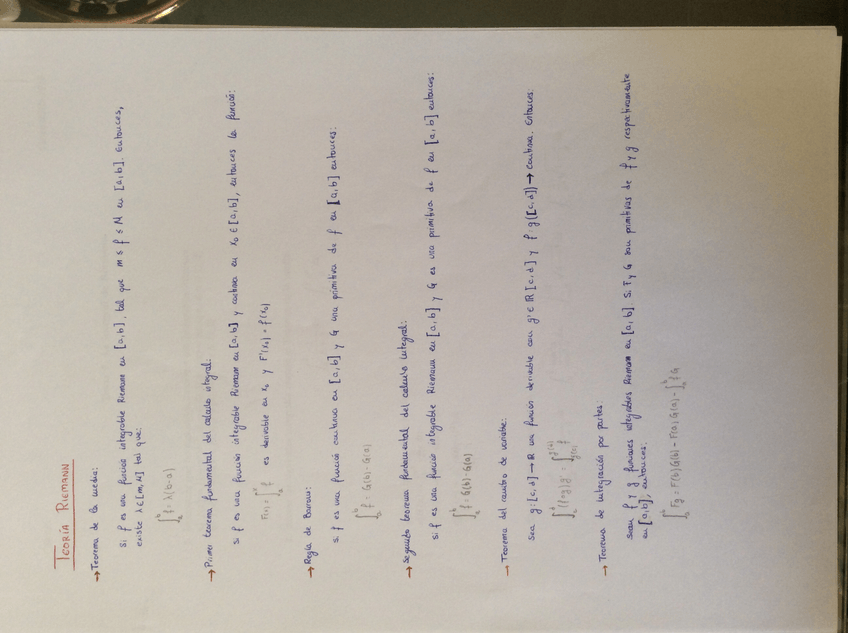 TEORÍA RIEMANN
→ Teorema de la media:
Si f es una función integrable Riemann en [a,b], tal que m ≤ f ≤ M en [a,b]. Entonces,
existe λ∈[m,M] tal que:
∫_a^b f = λ(b-a)
→ Primer teorema fundamental del cálculo integral:
Si f es una función integrable Riemann en [a,b] y continua en x₀ ∈ [a,b], entonces la función:
F(x) = ∫_a^x f es derivable en x₀ y F'(x₀) = f(x₀)
→ Regla de Barrow:
Si f es una función continua en [a,b] y G una primitiva de f en [a,b] entonces:
∫_a^b f = G(b)-G(a)
→ Segundo teorema fundamental del cálculo integral:
Si f es una función integrable Riemann en [a,b] y G es una primitiva de f en [a,b] entonces:
∫_a^b f = G(b)-G(a)
→ Teorema del cambio de variable:
Sea g:[c,d] → R una función derivable con g'∈ R[c,d] y f: g([c,d]) → continua. Entonces.
(f∘g)g' = ∫_{g(a)}^{g(b)} f
→ Teorema de integración por partes:
Sean f y g funciones integrables Riemann en [a,b]. Si F y G son primitivas de f y g respectivamente
en [a,b], entonces:
∫_a^b Fg = F(b)G(b) - F(a)G(a) - ∫_a^b fG